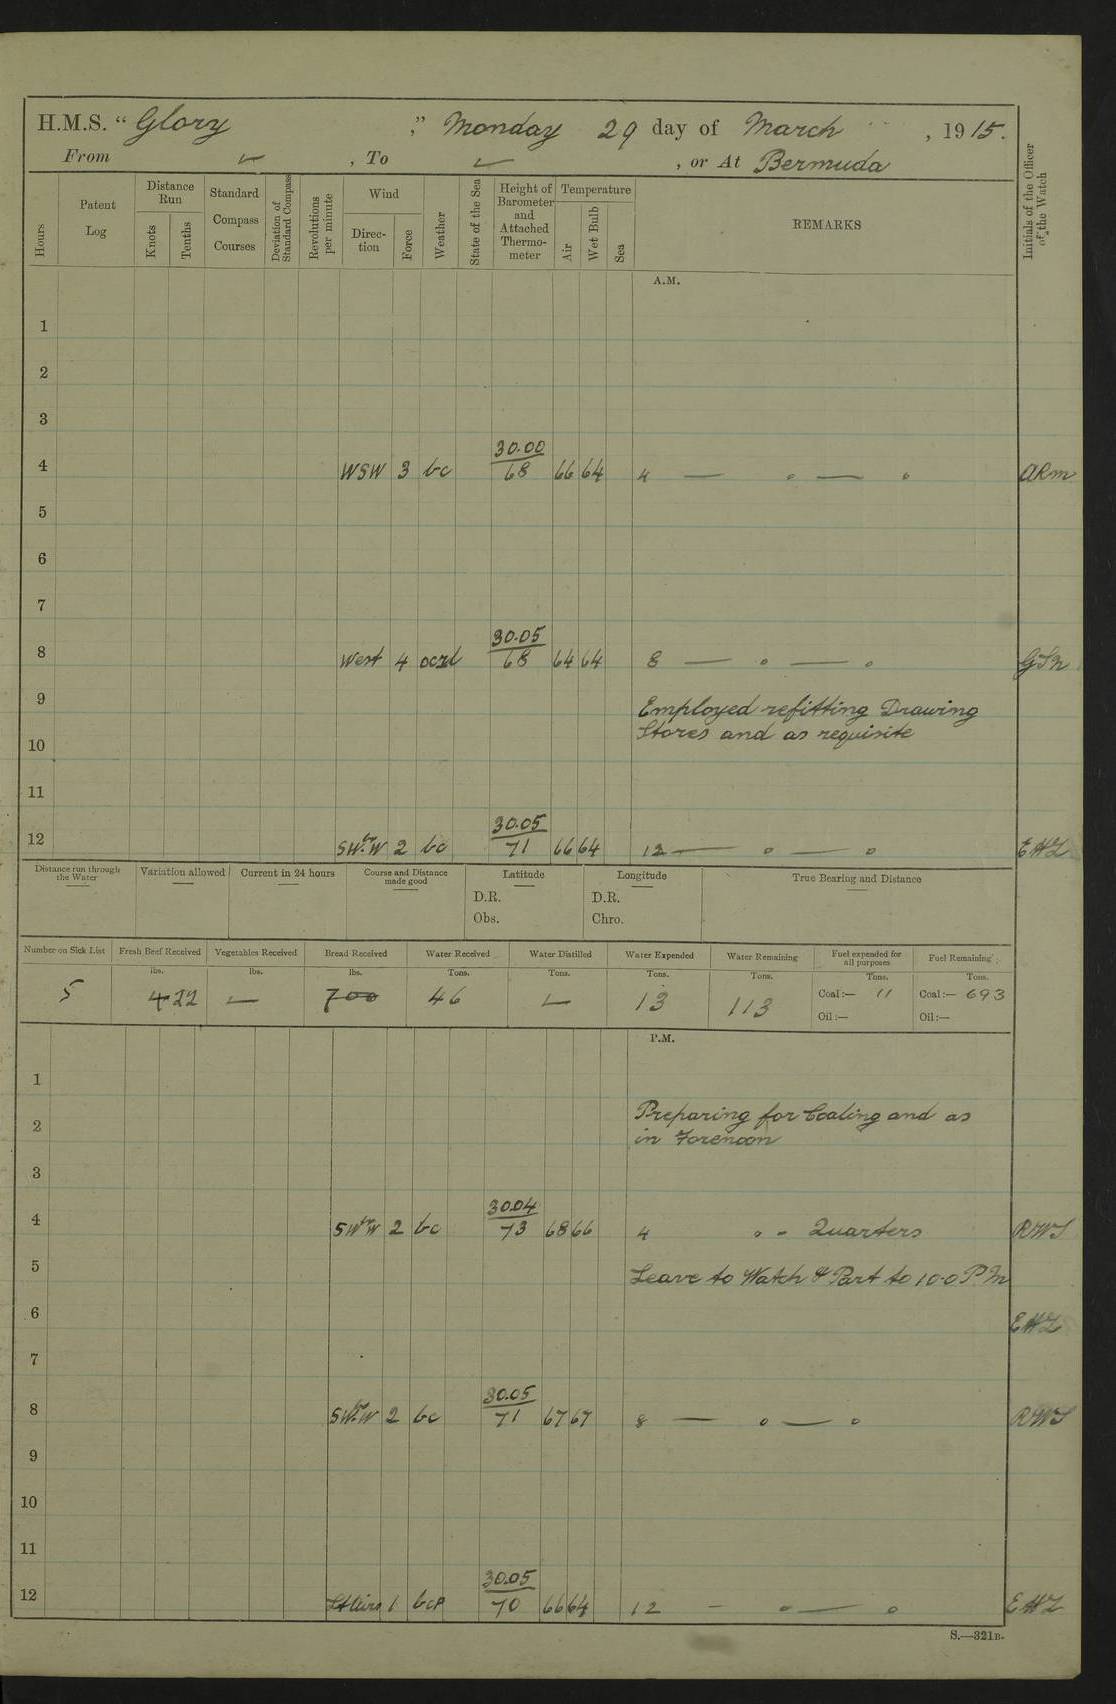 H.M.S. “ Glory ,” Monday 29 day of March , 1915.
From ✓ , To ✓ , or At Bermuda
Hours
Patent Log
Distance Run
Knots
Tenths
Standard Compass Courses
Deviation of Standard Compass
Revolutions per minute
Wind
Direction
Force
Weather
State of the Sea
Height of Barometer and Attached Thermometer
Temperature
Air
Wet Bulb
Sea
REMARKS
Initials of the Officer of the Watch
A.M.
1
2
3
4 WSW 3 bc 30.00 68 66 64 4 — " — " ARM
5
6
7
8 West 4 30.05 68 64 64 8 — " — "
9 Employed refitting Drawing
10 Stores and as requisite
11
12 SWbyW 2 bc 30.05 71 66 64 12 — " — "
Distance run through the Water
Variation allowed
Current in 24 hours
Course and Distance made good
Latitude
D.R.
Obs.
Longitude
D.R.
Chro.
True Bearing and Distance
Number on Sick List
Fresh Beef Received
Vegetables Received
Bread Received
Water Received
Water Distilled
Water Expended
Water Remaining
Fuel expended for all purposes
Fuel Remaining
lbs. lbs. lbs. Tons. Tons. Tons. Tons. Tons. Tons.
5 422 — 700 46 — 13 113 Coal:— 11 Coal:— 693
Oil:— Oil:—
P.M.
1
2 Preparing for Coaling and as
in Forenoon
3
4 SWbyW 2 bc 30.04 73 68 66 4 " " Quarters
5 Leave to Watch & Part to 10.0 P.M
6
7
8 SWbyW 2 bc 30.05 71 67 67 8 — " — "
9
10
11
12 Lt airs 1 bcp 30.05 70 66 64 12 — " — "
S.—321B.